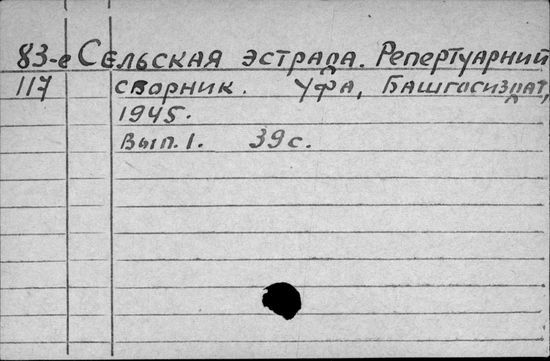 83-е Сельская эстрада. Репертуарний
117 сборник. Уфа, Башгосиздат,
1945.
Вып. 1. 39 с.